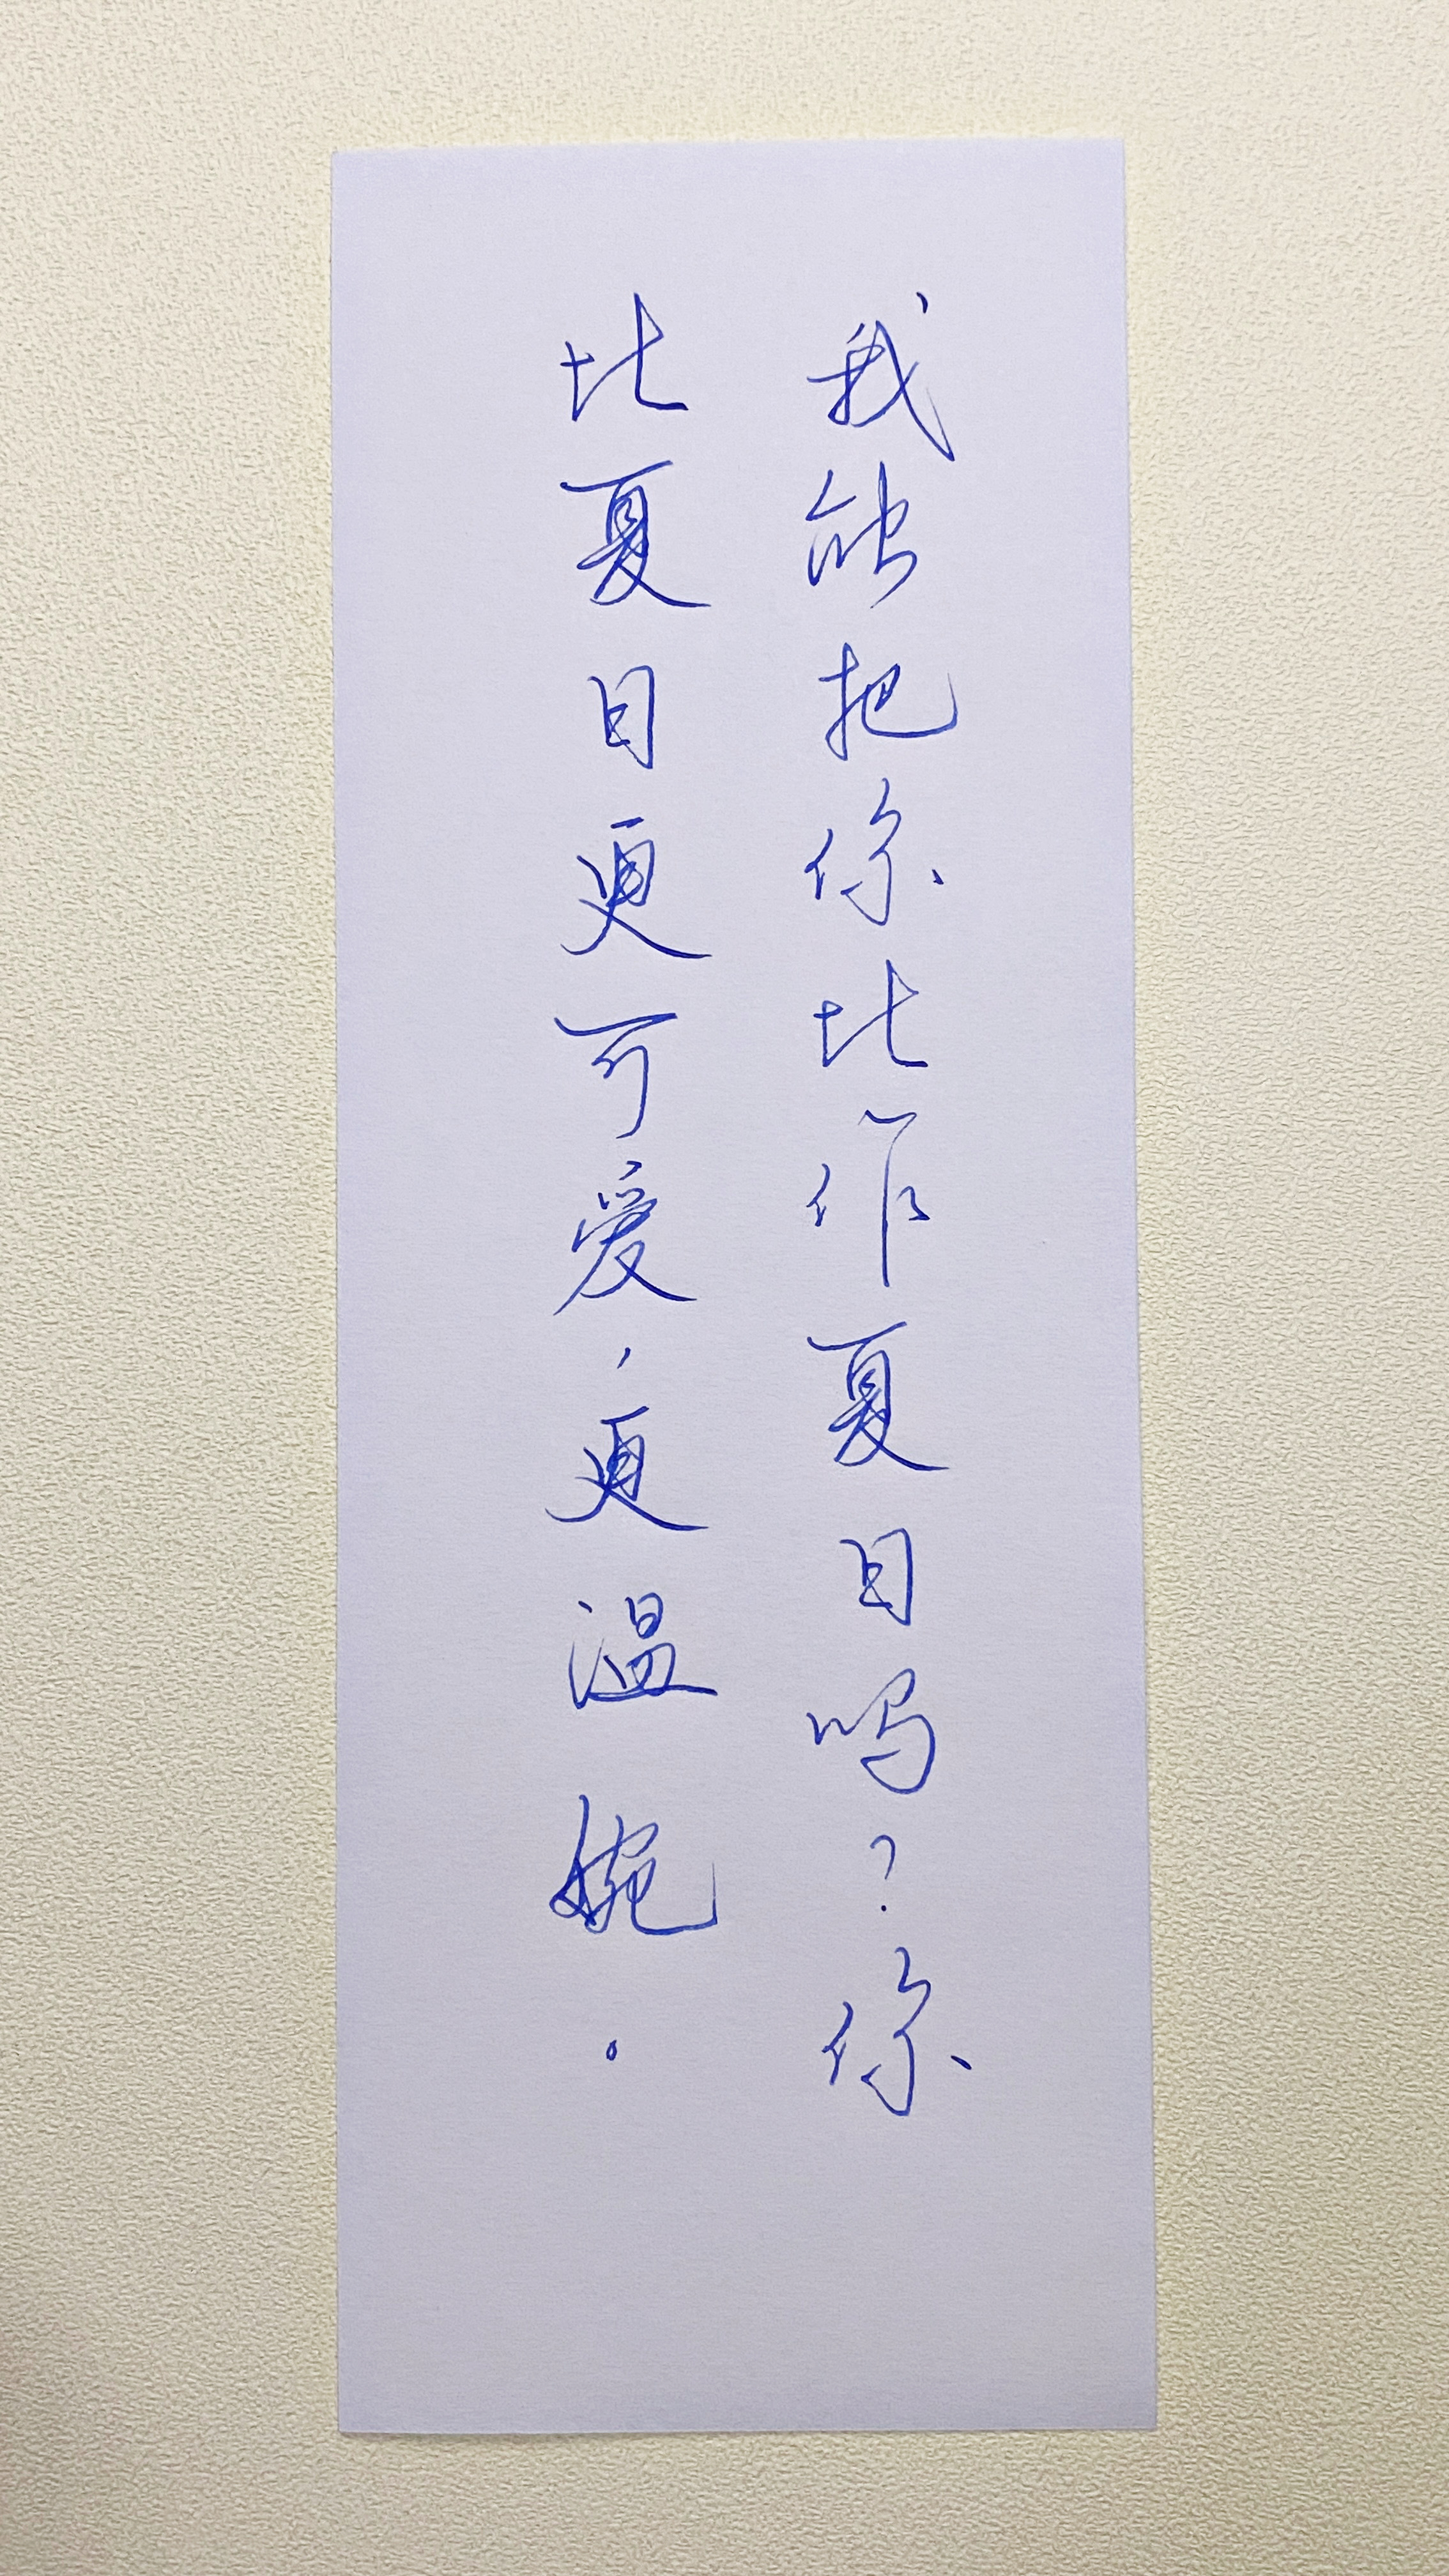 我能把你比作夏日吗？你
比夏日更可爱，更温婉。